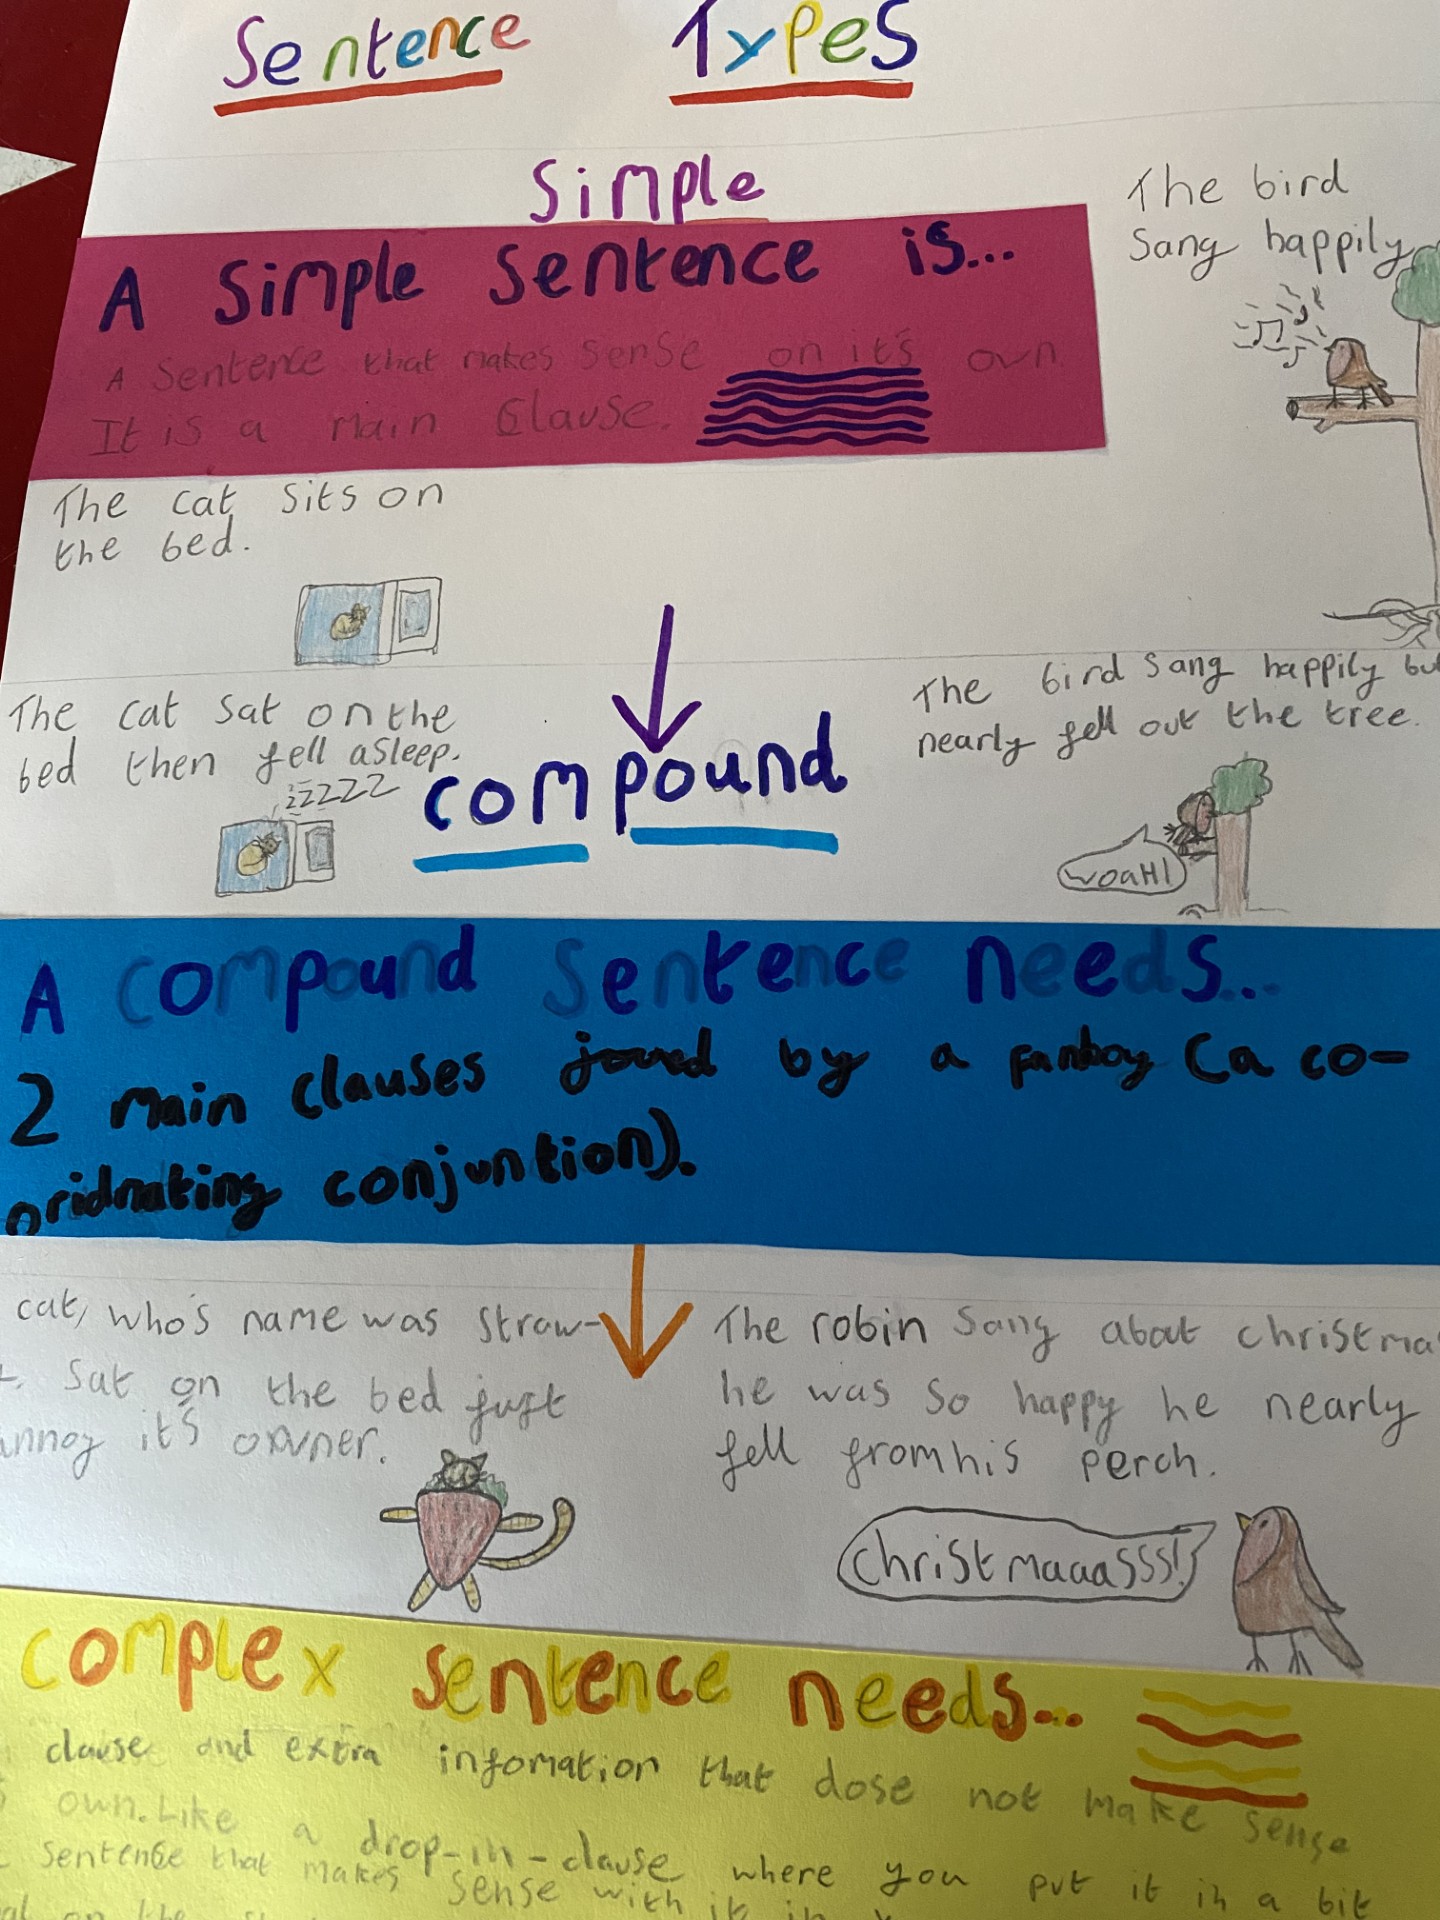 Sentence Types
Simple
A Simple Sentence is...
A Sentence that makes Sense on it's own
It is a main Clause.
The bird
Sang happily
The cat Sits on
the bed.
The cat Sat on the
bed then fell asleep.
zzzzz
compound
The bird Sang happily but
nearly fell out the tree.
WOAH!
A compound Sentence needs...
2 main clauses joined by a fanboy (a co-
oridnating conjuntion).
cat, who's name was Straw-
Sat on the bed just
annoy it's owner.
The robin Sang about christmas
he was So happy he nearly
fell from his perch.
christmaaasss!
complex sentence needs...
clause and extra infomation that dose not make sense
own. Like a drop-in-clause where you put it in a bit
Sentence that makes Sense with it in
on the